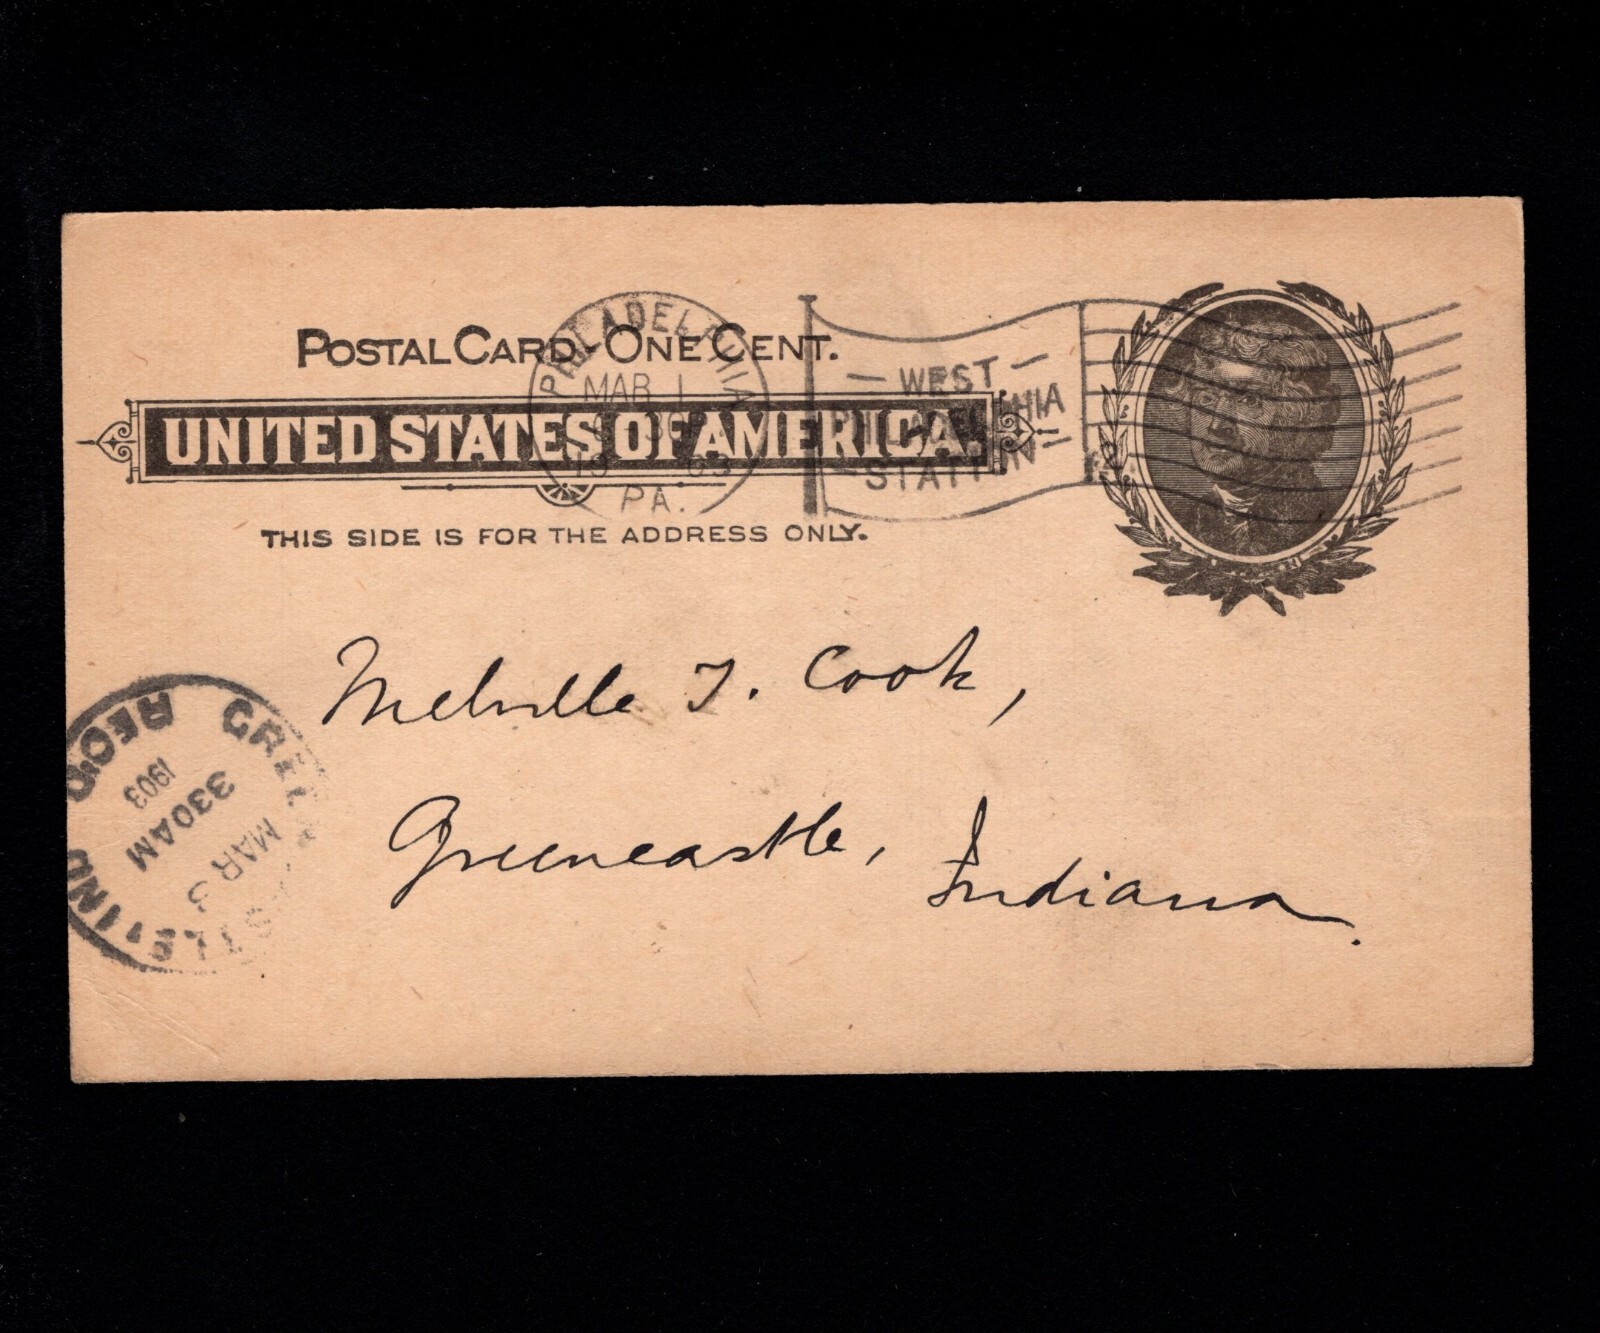 POSTAL CARD-ONE CENT.
UNITED STATES OF AMERICA.
THIS SIDE IS FOR THE ADDRESS ONLY.
PHILADELPHIA
MAR 1
PA.
WEST
PHILADELPHIA
STATION
Melville T. Cook,
Greencastle, Indiana.
GREENCASTLE, IND
MAR 3
330AM
1903
REC'D